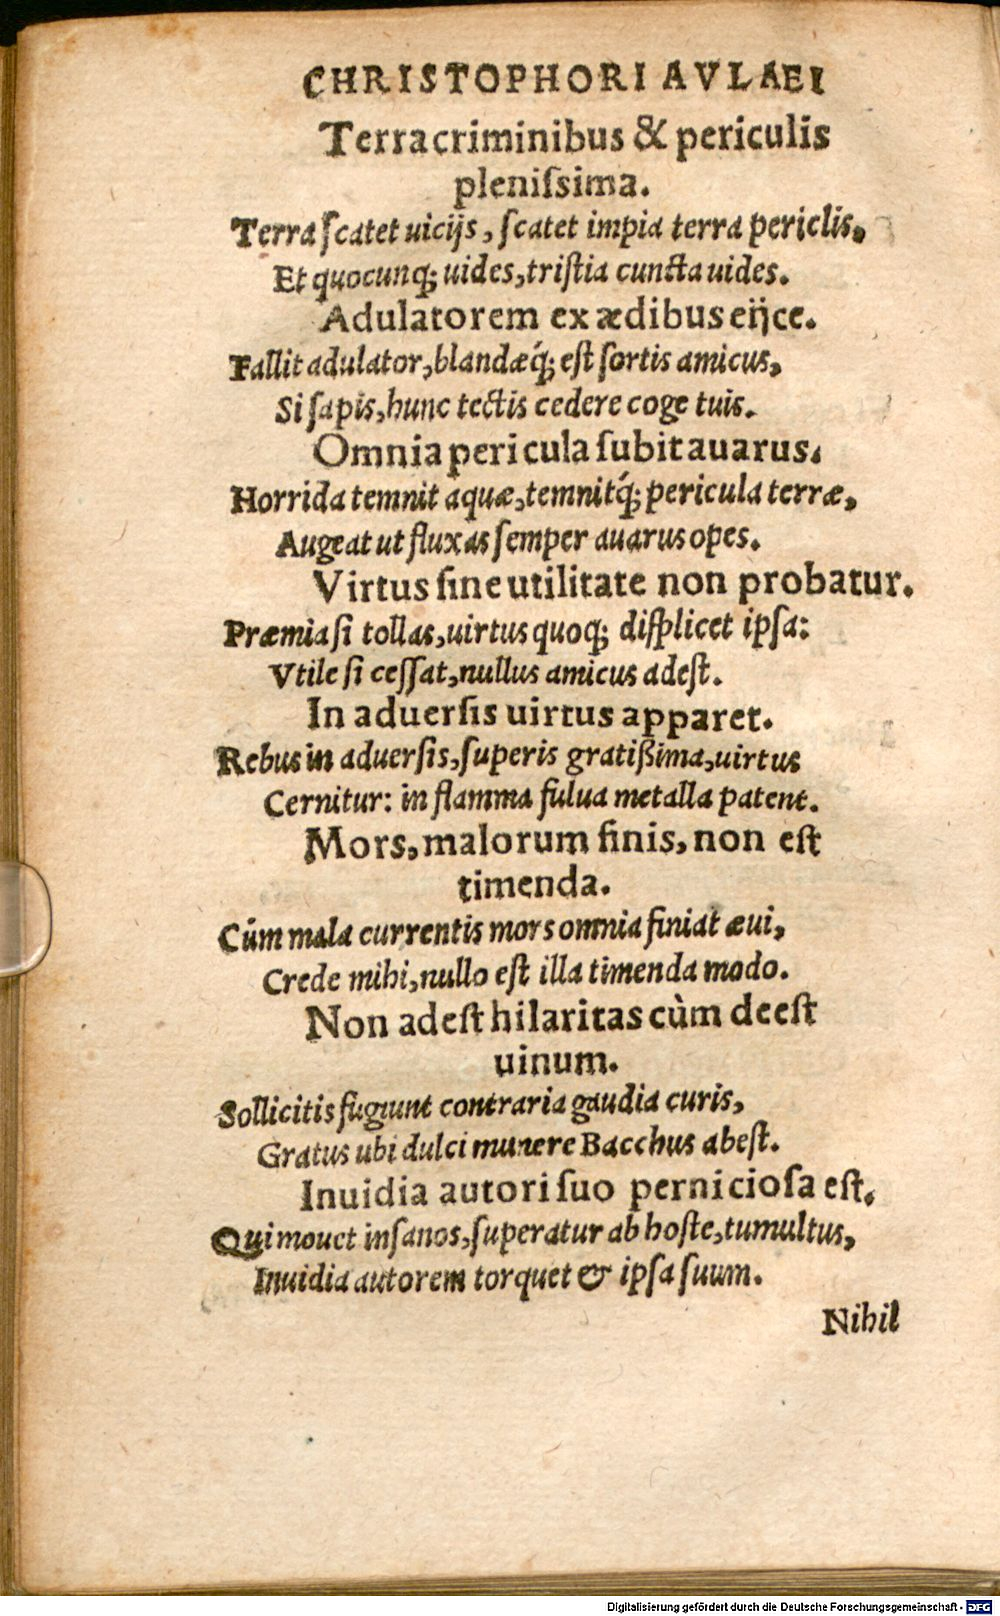 CHRISTOPHORI AVLAEI
Terra criminibus & periculis
pleniſsima.
Terra ſcatet uicijs, ſcatet impia terra periclis,
Et quocunq; uides, triſtia cuncta uides.
Adulatorem ex ædibus eijce.
Fallit adulator, blandæq́; eſt ſortis amicus,
Si ſapis, hunc tectis cedere coge tuis.
Omnia pericula ſubit auarus.
Horrida temnit aquæ, temnitq́; pericula terræ,
Augeat ut fluxas ſemper auarus opes.
Virtus ſine utilitate non probatur.
Præmia ſi tollas, uirtus quoq; diſplicet ipſa:
Vtile ſi ceſſat, nullus amicus adeſt.
In aduerſis uirtus apparet.
Rebus in aduerſis, ſuperis gratißima, uirtus
Cernitur: in flamma fulua metalla patent.
Mors, malorum finis, non eſt
timenda.
Cùm mala currentis mors omnia finiat æui,
Crede mihi, nullo eſt illa timenda modo.
Non adeſt hilaritas cùm deeſt
uinum.
Sollicitis fugiunt contraria gaudia curis,
Gratus ubi dulci munere Bacchus abeſt.
Inuidia autori ſuo pernicioſa eſt.
Qui mouet inſanos, ſuperatur ab hoſte, tumultus,
Inuidia autorem torquet & ipſa ſuum.
Nihil
Digitalisierung gefördert durch die Deutsche Forschungsgemeinschaft - DFG